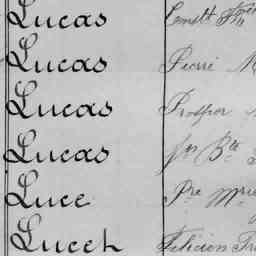 Lucas Const.t F.
Lucas Pierre M
Lucas Prosper
Lucas Jn Bte
Luce Pre Mrie
Lucet Félicien Fr